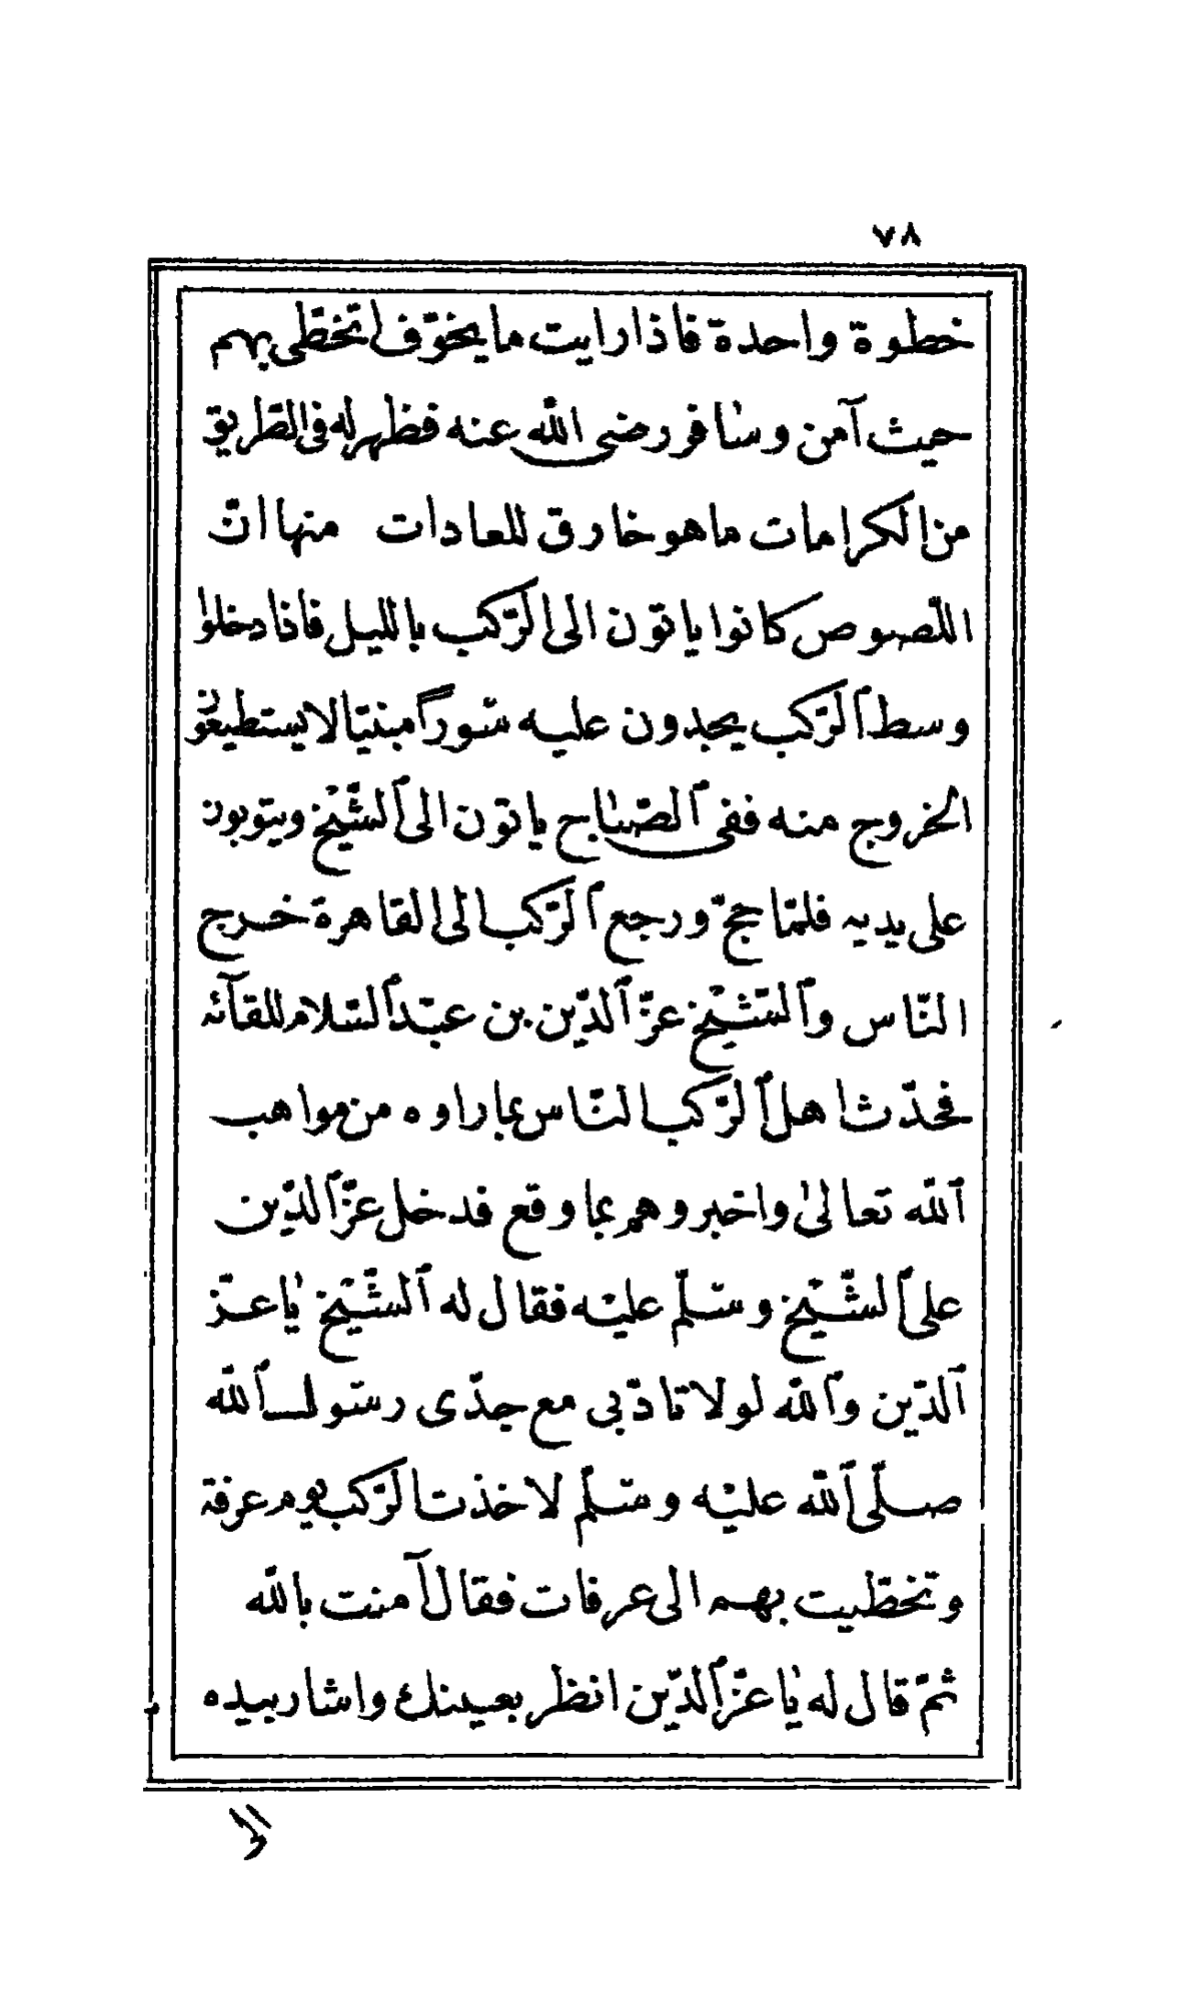 ٧٨
خطوة واحدة فاذا رايت ما يخوّف اتخطّى بهم
حيث آمن وسافر رضى الله عنه فظهر له فى الطّريق
من الكرامات ما هو خارق للعادات منها انّ
اللّصوص كانوا ياتون الى الرّكب بالليل فاذا دخلوا
وسط ٱلرّكب يجدون عليه سورًا مبنيّا لا يستطيعون
الخروج منه ففى ٱلصّباح ياتون الى ٱلشّيخ ويتوبون
على يديه فلمّا حجّ ورجع ٱلرّكب الى القاهرة خرج
النّاس وٱلشّيخ عزّ ٱلدّين بن عبد ٱلسّلام للقآئه
فحدّث اهل ٱلرّكب النّاس بما راوه من مواهب
ٱللّه تعالىٰ واخبروهم بما وقع فدخل عزّ ٱلدّين
على ٱلشّيْخ وسلّم عليْه فقال له ٱلشّيْخ يٰا عزّ
ٱلدّين وٱللّه لولا تادّبى مع جدّى رسول ٱللّه
صلّى ٱللّه عليْه وسلّم لاخذت الرّكب يوم عرفة
وتخطّيت بهم الى عرفات فقال آمنت باللّه
ثمّ قال له يٰا عزّ ٱلدّين انظر بعينك واشار بيده
الى